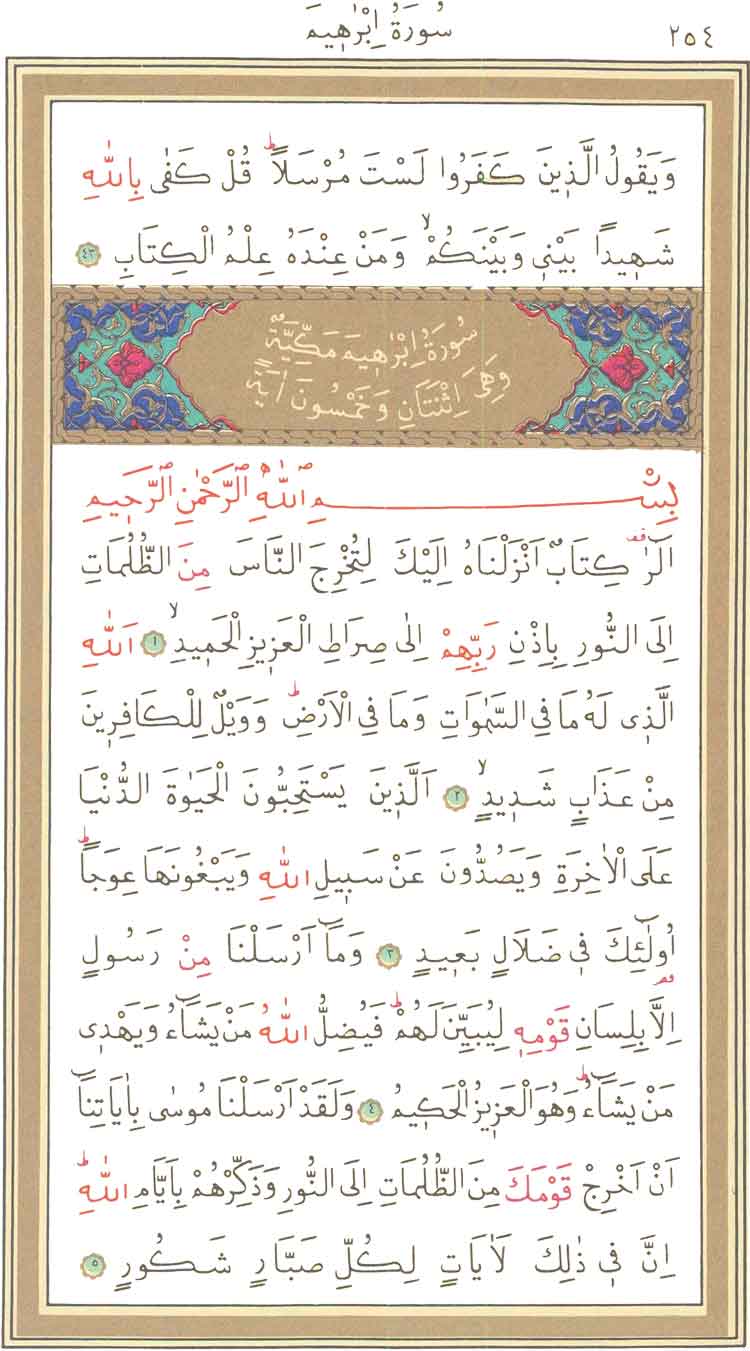 سُورَةُ اِبْرٰه۪يمَ
٢٥٤
وَيَقُولُ الَّذ۪ينَ كَفَرُوا لَسْتَ مُرْسَلاًۜ قُلْ كَفٰى بِاللّٰهِ
شَه۪يداً بَيْن۪ي وَبَيْنَكُمْۙ وَمَنْ عِنْدَهُ عِلْمُ الْكِتَابِ ٤٣
سُورَةُ اِبْرٰه۪يمَ مَكِّيَّةٌ
وَهِيَ اِثْنَتَانِ وَخَمْسُونَ اٰيَةً
بِسْمِ اللّٰهِ الرَّحْمٰنِ الرَّح۪يمِ
الٓرٰ كِتَابٌ اَنْزَلْنَاهُ اِلَيْكَ لِتُخْرِجَ النَّاسَ مِنَ الظُّلُمَاتِ
اِلَى النُّورِ بِاِذْنِ رَبِّهِمْ اِلٰى صِرَاطِ الْعَز۪يزِ الْحَم۪يدِۙ ١ اَللّٰهِ
الَّذ۪ي لَهُ مَا فِي السَّمٰوَاتِ وَمَا فِي الْاَرْضِۜ وَوَيْلٌ لِلْكَافِر۪ينَ
مِنْ عَذَابٍ شَد۪يدٍۙ ٢ اَلَّذ۪ينَ يَسْتَحِبُّونَ الْحَيٰوةَ الدُّنْيَا
عَلَى الْاٰخِرَةِ وَيَصُدُّونَ عَنْ سَب۪يلِ اللّٰهِ وَيَبْغُونَهَا عِوَجاًۜ
اُو۬لٰٓئِكَ ف۪ي ضَلَالٍ بَع۪يدٍ ٣ وَمَٓا اَرْسَلْنَا مِنْ رَسُولٍ
اِلَّا بِلِسَانِ قَوْمِه۪ لِيُبَيِّنَ لَهُمْۜ فَيُضِلُّ اللّٰهُ مَنْ يَشَٓاءُ وَيَهْد۪ي
مَنْ يَشَٓاءُۜ وَهُوَ الْعَز۪يزُ الْحَك۪يمُ ٤ وَلَقَدْ اَرْسَلْنَا مُوسٰى بِاٰيَاتِنَٓا
اَنْ اَخْرِجْ قَوْمَكَ مِنَ الظُّلُمَاتِ اِلَى النُّورِ وَذَكِّرْهُمْ بِاَيَّامِ اللّٰهِۜ
اِنَّ ف۪ي ذٰلِكَ لَاٰيَاتٍ لِكُلِّ صَبَّارٍ شَكُورٍ ٥